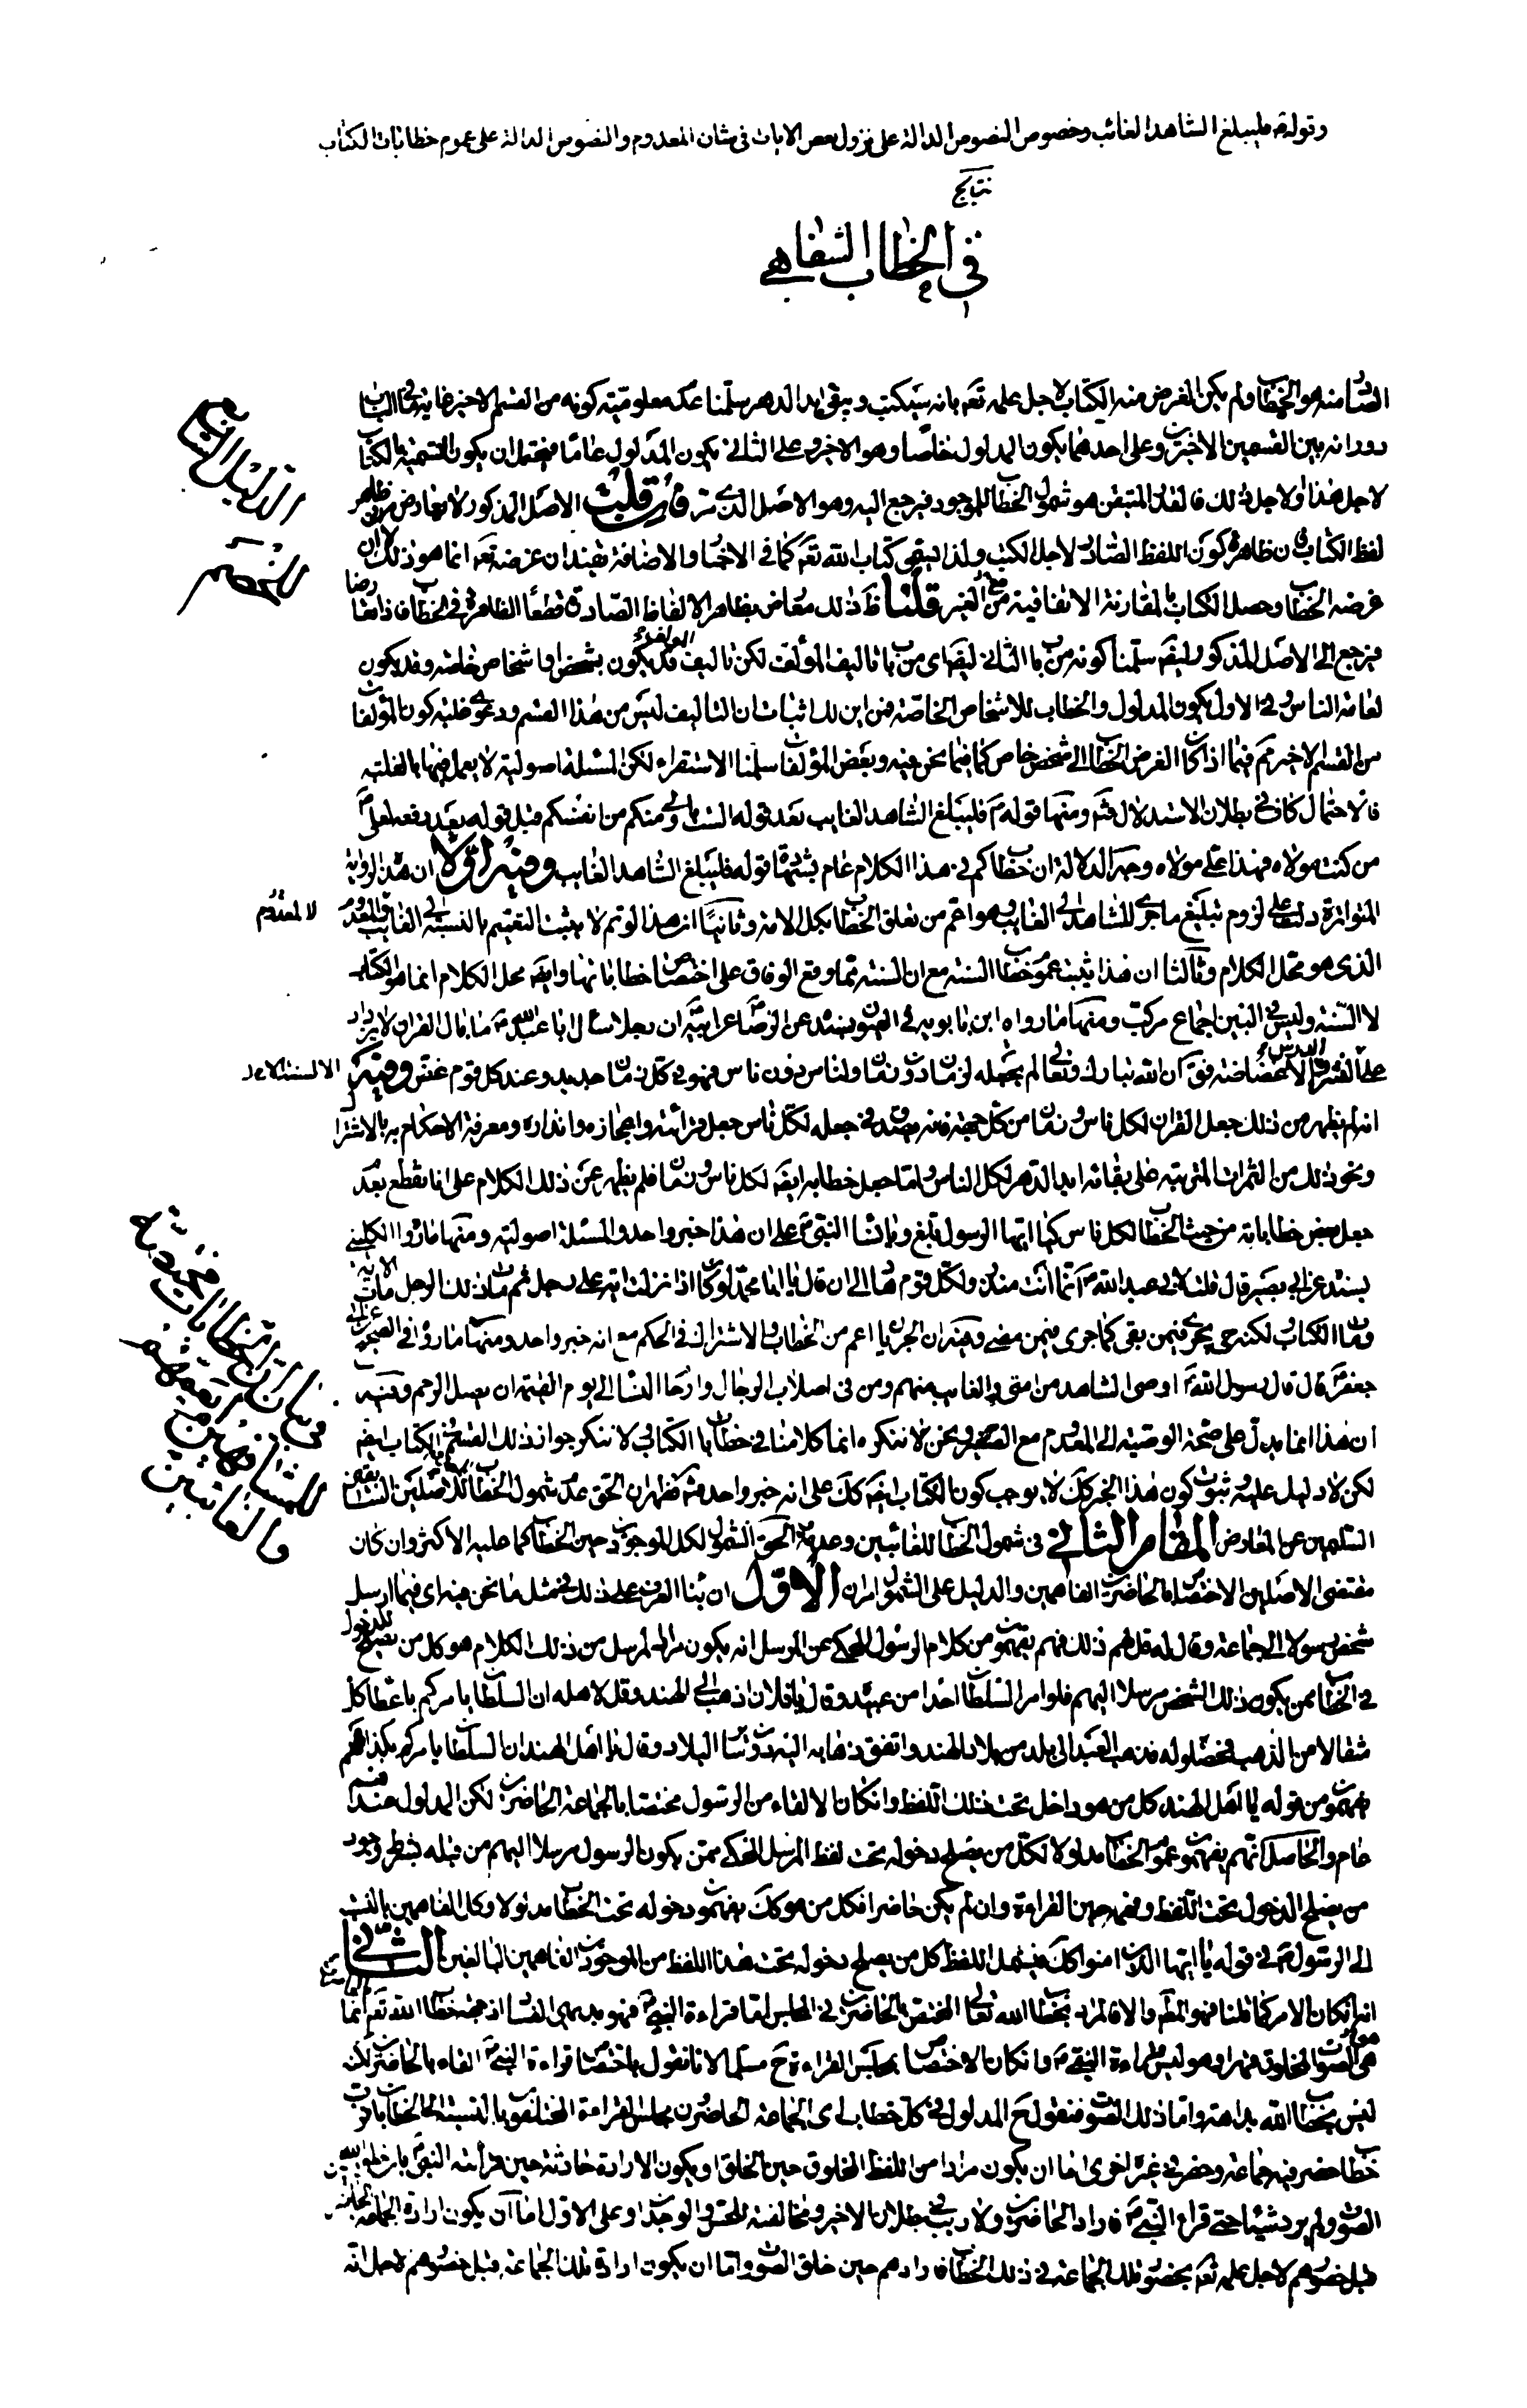 وقوله ع فليبلغ الشاهد الغائب وخصوص النصوص الدالة على نزول بعض الايات في شان المعدوم والنصوص الدالة على عموم خطابات الكتاب
نتايج
في الخطاب الشفاهي
منه هو الخطاب ولم يكن الغرض منه الكتاب لاجل علمه تعم بانه سيكتب ويبقى ابد الدهر سلمنا عدم معلومية كونه من القسم الاخير غاية ما في الباب
دورانه بين القسمين الاخيرين وعلى احدهما يكون المدلول خاصا وهو الاخير وعلى الثاني يكون المدلول عاما فيحتمل ان يكون التسمية بالكتاب
لاجل هذا او لاجل ذلك فالقدر المتيقن هو شمول الخطاب للموجود فيرجع اليه وهو الاصل الذي مر فان قلت الاصل المذكور لا يعارض ظاهر
لفظ الكتاب فان ظاهره كون اللفظ الصادر لاجل الكتب ولذا يبقى كتاب الله تعم كما في الاخبار والاضافة يفيد ان غرضه تعم انما هو ذلك لا ان
غرضه الخطاب وحصل الكتاب بالمقارنة الاتفاقية من الغير قلنا ذلك معارض بظاهر الالفاظ الصادرة قطعا الظاهرة في الخطاب
فيرجع الى الاصل المذكور ايضا سلمنا كونه من باب الثاني ايضا اي من باب تاليف المؤلف لكن تاليف المؤلف قد يكون بشخص او اشخاص خاصة وقد يكون
لعامة الناس وفي الاول يكون المدلول والخطاب للاشخاص الخاصة فمن اين لك اثبات ان التاليف ليس من هذا القسم ودعوى غلبة كون المؤلفات
من القسم الاخير مم فيما اذا كان الغرض الخطاب الى شخص خاص كما فيما نحن فيه وبعض المؤلفات سلمنا الاستقراء لكن المسئلة اصولية لا يعمل فيها بالغلبة
فالاحتمال كاف في بطلان الاستدلال فتم ومنها قوله ع فليبلغ الشاهد الغايب بعد قوله الست باولى منكم من انفسكم قبل قوله بعد رفعه لعلي
من كنت مولاه فهذا علي مولاه وجه الدلالة ان خطابكم في هذا الكلام عام بشهادة قوله فليبلغ الشاهد الغايب وفيه اولا ان هذه الرواية
المتواترة دلت على لزوم تبليغ ما جرى للشاهد الى الغايب وهو اعم من تعلق الخطاب بكل الامة وثانيا ان هذا لو تم لا يثبت التعميم بالنسبة الى الغايب
لا المعدوم
الذي هو محل الكلام وثالثا ان هذا يثبت عموم خطاب السنة مع ان السنة مما وقع الوفاق على اختصاص خطاباتها وايضا محل الكلام انما هو الكتاب
لا السنة وليس في البين اجماع مركب ومنها ما رواه ابن بابويه في العيون بسنده عن الرضا عن ابيه ان رجلا سال ابا عبد الله ع ما بال القران لا يزداد
على النشر والدرس الا غضاضة فق ان الله تبارك وتعالى لم يجعله لزمان دون زمان ولناس دون ناس فهو في كل زمان جديد وعند كل قوم غض وفيه
الى يوم القيمة
انه لم يظهر من ذلك جعل القران لكل ناس وزمان من كل جهة فانه يصدق في جعله لكل ناس جعل قرائته واعجازه وانذاره ومعرفة الاحكام به بالاشتراك
ونحو ذلك من الثمرات المترتبة على بقائه ابد الدهر لكل الناس واما جعل خطابه ايضا لكل ناس وزمان فلم يظهر عن ذلك الكلام على انا نقطع بعدم
جعل بعض خطاباته من حيث الخطاب لكل ناس كيا ايها الرسول بلغ ويا نساء النبي ص على ان هذا خبر واحد والمسئلة اصولية ومنها ما رواه الكليني
بسنده عن ابي بصير قال قلت لابي عبد الله ع انما انت منذر ولكل قوم هاد الى ان قال يا ابا محمد لو كان اذا نزلت اية على رجل ثم مات ذلك الرجل ماتت الاية
ومات الكتاب ولكنه حي يجري فيمن بقي كما جرى فيمن مضى وفيه ان الجريان اعم من الخطاب والاشتراك في الحكم مع انه خبر واحد ومنها ما روى في الصحيح عن ابي
جعفر ع قال قال رسول الله ص اوصي الشاهد من امتي والغايب منهم ومن في اصلاب الرجال وارحام النساء الى يوم القيمة ان يصل الرحم وفيه
ان هذا انما يدل على صحة الوصية الى المعدوم مع الصغير ونحن لا ننكره انما كلامنا في خطابات الكتاب ولا ننكر جواز ذلك القسم في الكتاب ايضا
لكن لا دليل عليه وثبوت كون هذا الخبر كك لا يوجب كون الكتاب ايضا كك على انه خبر واحد فتم فظهر ان الحق عدم شمول الخطاب للمعدومين للاصلين السابقين
السليمين عن المعارض المقام الثاني في شمول الخطاب للغائبين وعدمه الحق الشمول لكل الموجودين حين الخطاب كما عليه الاكثر وان كان
مقتضى الاصلين الاختصاص بالحاضرين الفاهمين والدليل على الشمول امران الاول ان بناء العرف على ذلك في مثل ما نحن فيه اي فيما ارسل
شخص رسولا الى جماعة وقال له قل لهم ذلك فهم يفهمون من كلام الرسول المحكي عن المرسل انه يكون مراد المرسل من ذلك الكلام هو كل من يصلح للدخول
في الخطاب ممن يكون ذلك الشخص مرسلا اليهم فلو امر السلطان احدا من عبيده وقال يا فلان اذهب الى الهند وقل لاهله ان السلطان يامركم باعطاء كل
مثقالا من الذهب فحصلوه فذهب العبد الى بلد من بلاد الهند واتفق ذهابه اليه دون سائر البلاد وقال يا اهل الهند ان السلطان يامركم بكذا فهم
يفهمون من قوله يا اهل الهند كل من هو داخل تحت ذلك اللفظ وان كان الالقاء من الرسول مختصا بالجماعة الحاضرين لكن المدلول عندهم
عام والحاصل انهم يفهمون عموم الخطاب مدلولا لكل من يصلح دخوله تحت لفظ المرسل المحكي ممن يكون الرسول مرسلا اليهم من قبله بشرط وجود
من يصلح الدخول تحت اللفظ وفهمه حين القراءة وان لم يكن حاضرا فكل من هو كك يفهمون دخوله تحت الخطاب مدلولا وكل الفاهمين بالنسبة
الى الرسول ص في قوله يا ايها الذين امنوا كك فيشمل اللفظ كل من يصلح دخوله تحت هذا اللفظ من الموجودين الفاهمين البالغين الثاني
انه ان كان الامر كما قلنا فهو المط والا فالمراد بخطاب الله تعالى المختص بالحاضرين في المجلس اما قراءة النبي ص فهو بديهي الفساد اذ خطاب الله تعم انما
هي الصوت المخلوق وهو ليس قراءة النبي ص وان كان الاختصاص بمجلس القراءة ح مسلما لانا نقول باختصاص قراءة النبي ص القاءه بالحاضرين لكنه
ليس بخطاب الله بداهة واما ذلك الصوت فنقول ح المدلول في كل خطاب لدى الجماعة الحاضرين بمجلس القراءة المختلفون بالنسبة الى الخطابات فرب
خطاب حضر فيه جماعة وحضر في غيره اخرى اما ان يكون مرادا من اللفظ المخلوق حين الخلق او يكون الارادة حادثة حين قراءة النبي ص
الصوت ولم يرد شيئا حتى قراءة النبي ص فاراد الحاضرين ولا ريب في بطلان الاخير ومخالفته للحس والوجدان وعلى الاول اما ان يكون ارادة الجماعة
قبل حضورهم لاجل علمه تعم بحضور تلك الجماعة في ذلك الخطاب فارادهم حين خلق الصوت واما ان يكون ارادة تلك الجماعة قبل حضورهم لاجل انه
الدليل التاسع
للخصم
في بيان ان الخطابات
للمشافهين
والغائبين